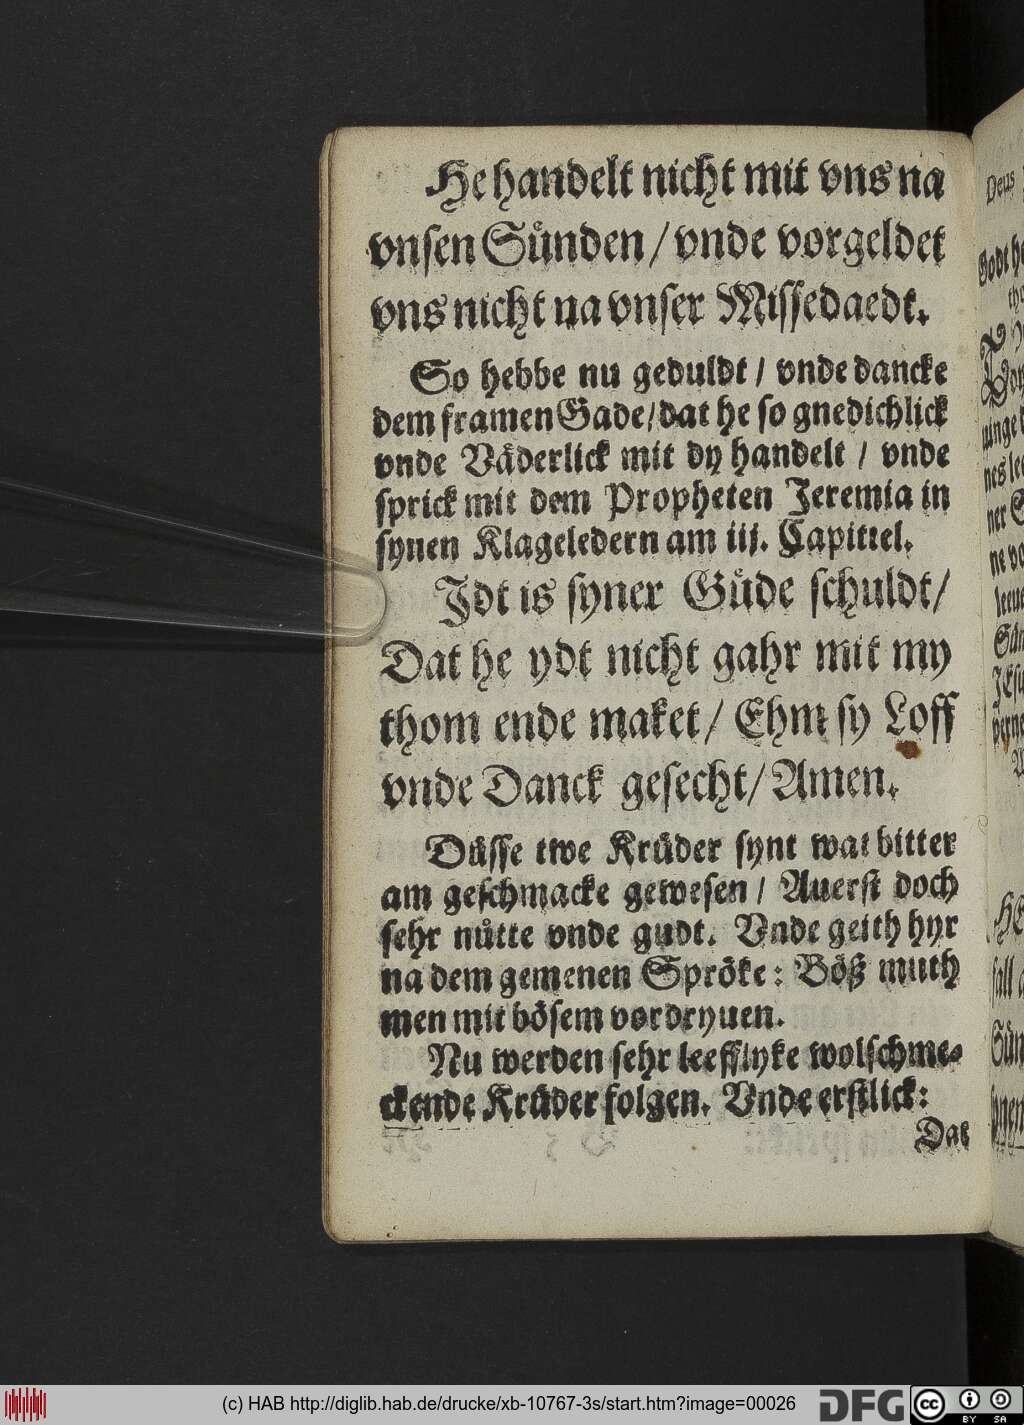 He handelt nicht mit vns na
vnsen Sünden / vnde vorgeldet
vns nicht na vnser Missedaedt.
So hebbe nu geduldt / vnde dancke
dem framen Gade / dat he so gnedichlick
vnde Väderlick mit dy handelt / vnde
sprick mit dem Propheten Jeremia in
synen Klageledern am iij. Capittel.
Jdt is syner Güde schuldt /
Dat he ydt nicht gahr mit my
thom ende maket / Ehm sy Loff
vnde Danck gesecht / Amen.
Düsse twe Krüder synt wat bitter
am geschmacke gewesen / Auerst doch
sehr nütte vnde gudt. Vnde geith hyr
na dem gemenen Spröke: Böß muth
men mit bösem vordryuen.
Nu werden sehr leefflyke wolschme-
ckende Krüder folgen. Vnde erstlick:
Dat
Deus
(c) HAB http://diglib.hab.de/drucke/xb-10767-3s/start.htm?image=00026
DFG
cc
BY SA